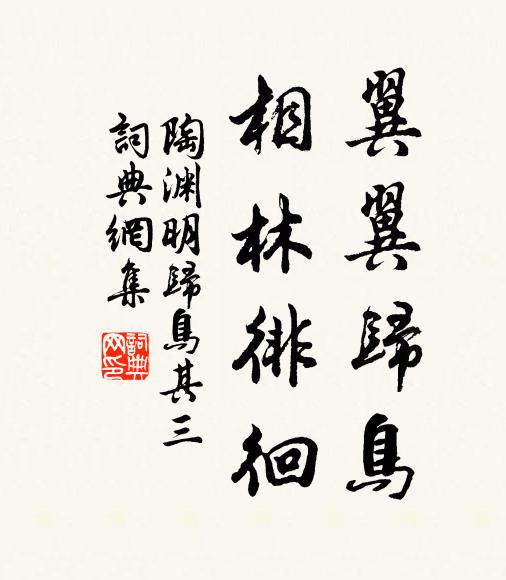 翼翼歸鳥
相林徘徊
陶渊明歸鳥其三
詞典網集
詞典网印